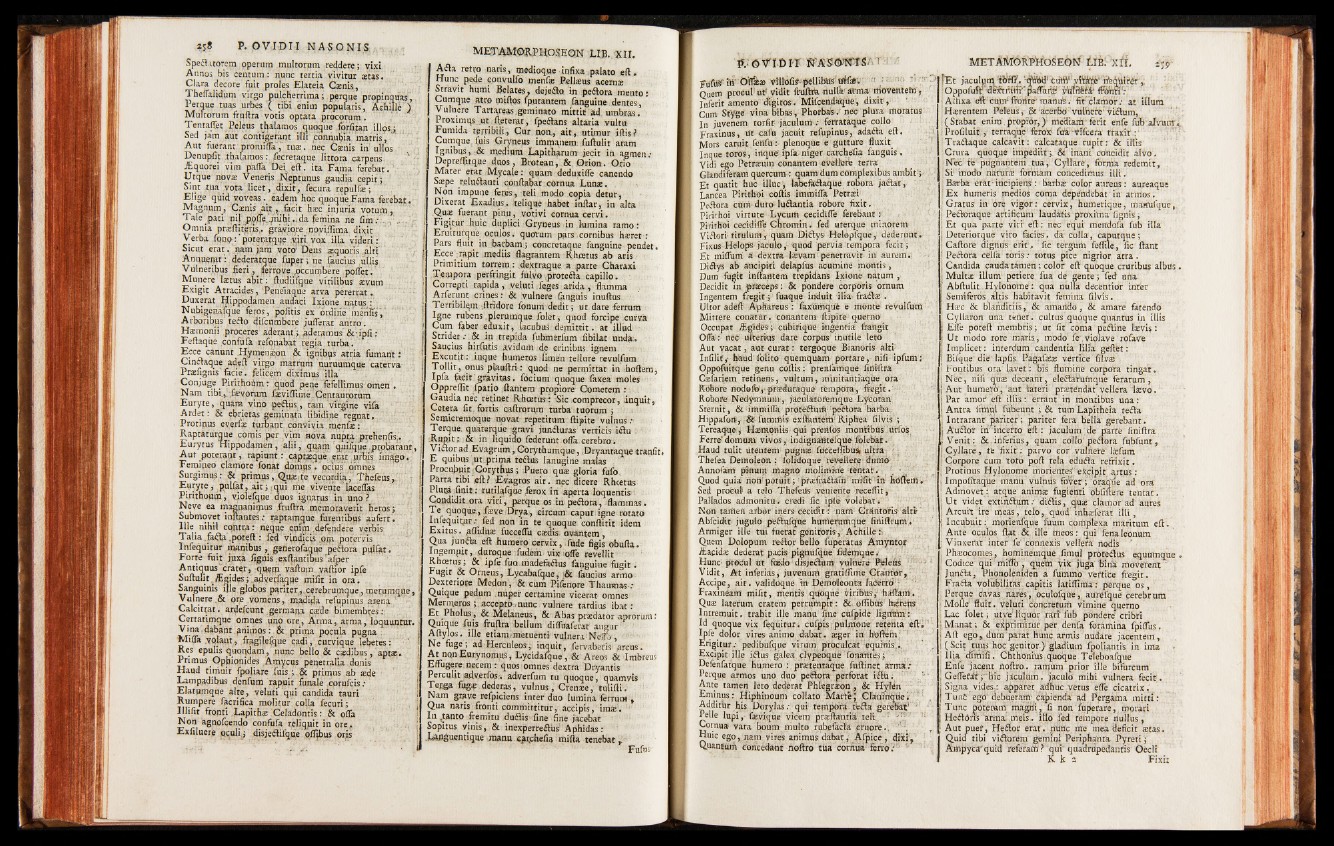 258 P. OVIDII NASONIS
Spectatorem operum multorum reddere; vixi
Annos bis centum: nunc tertia vivitur ætas.
Clara decore fuit proles Elateia Cænis,
Thessalidum virgo pulcherrima; perque propinquas,
Perque tuas urbes ( tibi enim popularis, Achille )
Multorum frustra votis optata procorum.
Tentasset Peleus thalamos quoque forsitan illos;
Sed jam aut contigerant illi connubia matris,
Aut fuerant promissa, tuæ. nec Cænis in ullos
Denupsit thalamos: secretaque littora carpens
Æquorei vim passa Dei est. ita Fama ferebat.
Utque novæ Veneris Neptunus gaudia cepit;
Sint tua vota licet, dixit, secura repulsæ;
Elige quid voveas. eadem hoc quoque Fama ferebat.
Magnum, Cænis ait, facit hæc injuria votum,
Tale pati nil posse mihi. da femina ne sim:
Omnia præstiteris. graviore novissima dixit
Verba sono: poteratque viri vox illa videri:
Sicut erat. nam jam voto Deus æquoris alti
Annuerat: dederatque super; ne saucius ullis
Vulneribus fieri, ferrove occumbere posset.
Munere lætus abit: studiisque virilibus ævum
Exigit Atracides, Peneiaque arva pererrat.
Duxerat Hippodamen audaci Ixione natus:
Nubigenasque feros, positis ex ordine mensis,
Arboribus tecto discumbere jusserat antro.
Hæmonii proceres aderant; aderamus & ipsi:
Festaque confusa resonabat regia turba.
Ecce canunt Hymenæon & ignibus atria fumant:
Cinctaque adest virgo matrum nuruumque caterva
Præsignis facie. felicem diximus illa
Conjuge Pirithoum: quod pene fefellimus omen.
Nam tibi, sævorum sævissime Centaurorum
Euryte, quam vino pectus, tam virgine visa
Ardet: & ebrietas geminata libidine regnat.
Protinus eversæ turbant convivia mensæ:
Raptaturque comis per vim nova nupta prehensis.
Eurytus Hippodamen, alii, quam quisque probarant,
Aut poterant, rapiunt: captæque erat urbis imago.
Femineo clamore sonat domus. ocius omnes
Surgimus: & primus, Quæ te vecordia, Theseus,
Euryte, pulsat, ait; qui me vivente lacessas
Pirithoum, violesque duos ignarus in uno?
Neve ea magnanimus frustra memoraverit heros;
Submovet instantes: raptamque furentibus aufert.
Ille nihil contra: neque enim defendere verbis
Talia facta potest: sed vindicis ora protervis
Insequitur manibus, generosaque pectora pulsat.
Forte fuit juxa signis exstantibus asper
Antiquus crater, quem vastum vastior ipse
Sustulit Ægides; adversaque misit in ora.
Sanguinis ille globos pariter, cerebrumque, merumque,
Vulnere & ore vomens, madida resupinus arena
Calcitrat. ardescunt germana cæde bimembres:
Certatimque omnes uno ore, Arma, arma, loquuntur.
Vina dabant animos: & prima pocula pugna
Missa volant, fragilesque cadi, curvique lebetes:
Res epulis quondam, nunc bello & cædibus, aptæ.
Primus Ophionides Amycus penetralia donis
Haud timuit spoliare suis; & primus ab æde
Lampadibus densum rapuit funale coruscis:
Elatumque alte, veluti qui candida tauri
Rumpere sacrifica molitur colla securi;
Illisit fronti Lapithæ Celadontis: & ossa
Non agnoscendo confusa reliquit in ore.
Exsiluere oculi; disjectisque ossibus oris
METAMORPHOSEON LIB. XII.
Acta retro naris, medioque infixa palato est.
Hunc pede convulso mensæ Pellæus acernæ
Stravit humi Belates, dejecto in pectora mento:
Cumque atro mistos sputantem sanguine dentes,
Vulnere Tartareas geminato mittit ad umbras.
Proximus ut steterat, spectans altaria vultu
Fumida terribili, Cur non, ait, utimur istis?
Cumque suis Gryneus immanem sustulit aram
Ignibus, & medium Lapitharum jecit in agmen:
Depressitque duos, Brotean, & Orion. Orio
Mater erat Mycale: quam deduxisse canendo
Sæpe reluctanti constabat cornua Lunæ.
Non impune feres, teli modo copia detur,
Dixerat Exadius. telique habet instar, in alta
Quæ fuerant pinu, votivi cornua cervi.
Figitur huic duplici Gryneus in lumina ramo:
Eruiturque oculos. quorum pars cornibus hæret:
Pars fluit in barbam; concretaque sanguine pendet.
Ecce rapit mediis flagrantem Rhœtus ab aris
Primitium torrem: dextraque a parte Charaxi
Tempora perfringit fulvo protecta capillo.
Correpti rapida, veluti seges arida, flamma
Arserunt crines: & vulnere sanguis inustus
Terribilem stridore sonum dedit; ut dare ferrum
Igne rubens plerumque solet, quod forcipe curva
Cum faber eduxit, lacubus demittit. at illud
Stridet: & in trepida submersum sibilat unda.
Saucius hirsutis avidum de crinibus ignem
Excutit: inque humeros limen tellure revulsum
Tollit, onus plaustri: quod ne permittat in hostem,
Ipsa facit gravitas. socium quoque saxea moles
Oppressit spatio stantem propiore Cometem:
Gaudia nec retinet Rhœtus: Sic comprecor, inquit,
Cetera sit fortis castrorum turba tuorum;
Semicremoque novat repetitum stipite vulnus:
Terque quaterque gravi juncturas verticis ictu
Rupit: & in liquido sederunt ossa cerebro.
Victor ad Evagrum, Corythumque, Dryantaque transit.
E quibus ut prima tectus lanugine malas
Procubuit Corythus; Puero quæ gloria fuso
Parta tibi est? Evagros ait. nec dicere Rhœtus
Plura sinit: rutilasque ferox in aperta loquentis
Condidit ora viri, perque os in pectora, flammas.
Te quoque, sæve Drya, circum caput igne rotato
Insequitur: sed non in te quoque constitit idem
Exitus. assiduæ successu cædis ovantem,
Qua juncta est humero cervix, sude figis obusta.
Ingemuit, duroque sudem vix osse revellit
Rhœtus; & ipse suo madefactus sanguine fugit.
Fugit & Orneus, Lycabasque, & saucius armo
Dexteriore Medon, & cum Pisenore Thaumas:
Quique pedum nuper certamine vicerat omnes
Mermeros; accepto nunc vulnere tardius ibat:
Et Pholus, & Melaneus, & Abas prædator aprorum:
Quique suis frustra bellum dissuaserat augur
Astylos. ille etiam metuenti vulnera Nesso,
Ne fuge; ad Herculeos, inquit, servaberis arcus.
At non Eurynomus, Lycidasque, & Areos & Imbreus
Effugere necem: quos omnes dextra Dryantis
Perculit adversos. adversum tu quoque, quamvis
Terga fugæ dederas, vulnus, Crenæe, tulisti.
Nam grave respiciens inter duo lumina ferrum,
Qua naris fronti committitur, accipis, imæ.
In tanto fremitu ductis sine fine jacebat
Sopitus vinis, & inexperrectus Aphidas:
Languentique manu carchesia mista tenebat,
Fusus
P. OVIDII NASONIS
Fusus in Ossææ villosis pellibus ursæ.
Quem procul ut vidit frustra nulla arma moventem,
Inserit amento digitos. Miscendaque, dixit,
Cum Styge vina bibas, Phorbas. nec plura moratus
In juvenem torsit jaculum: ferrataque collo
Fraxinus, ut casu jacuit resupinus, adacta est.
Mors caruit sensu: plenoque e gutture fluxit
Inque toros, inque ipsa niger carchesia sanguis.
Vidi ego Petræum conantem evellere terra
Glandiferam quercum: quam dum complexibus ambit;
Et quatit huc illuc, labefactaque robora jactat,
Lancea Pirithoi costis immissa Petræi
Pectora cum duro luctantia robore fixit.
Pirithoi virtute Lycum cecidisse ferebant:
Pirithoi cecidisse Chromin. sed uterque minorem
Victori titulum, quam Dictys Helopsque, dederunt.
Fixus Helops jaculo, quod pervia tempora fecit;
Et missum a dextra lævam penetravit in aurem.
Dictys ab ancipiti delapsus acumine montis,
Dum fugit instantem trepidans Ixione natum,
Decidit in præceps: & pondere corporis ornum
Ingentem fregit; suaque induit ilia fractæ.
Ultor adest Aphareus: saxumque e monte revulsum
Mittere conatur. conantem stipite querno
Occupat Ægides; cubitique ingentia frangit
Ossa: nec ulterius dare corpus inutile leto
Aut vacat, aut curat: tergoque Bianoris alti
Insilit, haud solito quemquam portare, nisi ipsum;
Opposuitque genu costis: prensamque sinistra
Cæsariem retinens, vultum, minitantiaque ora
Robore nodoso, præduraque tempora, fregit.
Robore Nedymnum, jaculatoremque Lycotan
Sternit, & immissa protectum pectora barba
Hippason, & summis exstantem Riphea silvis;
Tereaque, Hæmoniis qui prensos montibus ursos
Ferre domum vivos, indignantesque solebat.
Haud tulit utentem pugnæ successibus ultra
Thesea Demoleon: solidoque revellere dumo
Annosam pinum magno molimine tentat.
Quod quia non potuit; præfractam misit in hostem.
Sed procul a telo Theseus veniente recessit,
Pallados admonitu. credi sic ipse volebat.
Non tamen arbor iners cecidit: nam Crantoris alti
Abscidit jugulo pectusque humerumque sinistrum.
Armiger ille tui fuerat genitoris, Achille:
Quem Dolopum rector bello superatus Amyntor
Æacidæ dederat pacis pignusque fidemque.
Hunc procul ut fœdo disjectum vulnere Peleus
Vidit, At inferias, juvenum gratissime Crantor,
Accipe, ait. validoque in Demoleonta lacerto
Fraxineam misit, mentis quoque viribus, hastam.
Quæ laterum cratem perrumpit: & ossibus hærens
Intremuit. trahit ille manu sine cuspide lignum:
Id quoque vix sequitur. cuspis pulmone retenta est.
Ipse dolor vires animo dabat. æger in hostem
Erigitur: pedibusque virum proculcat equinis.
Excipit ille ictus galea clypeoque sonantes;
Defensatque humero: prætentaque sustinet arma:
Perque armos uno duo pectora perforat ictu.
Ante tamen leto dederat Phlegræon, & Hylen
Eminus: Hiphinoum collato Marte, Claninque.
Additur his Dorylas: qui tempora tecta gerebat
Pelle lupi, sævique vicem præstantia teli
Cornua vara boum multo rubefacta cruore.
Huic ego, nam vires animus dabat, Aspice, dixi,
Quantum concedant nostro tua cornua ferro:
METAMORPHOSEON LIB. XII. 259
Et jaculum torsi. quod cum vitare nequiret,
Opposuit dextram passuræ vulnera fronti:
Affixa est cum fronte manus. fit clamor. at illum
Hærentem Peleus, & acerbo vulnere victum,
( Stabat enim propior,) mediam ferit ense sub alvum.
Prosiluit, terraque ferox sua viscera traxit:
Tractaque calcavit: calcataque rupit: & illis
Crura quoque impediit; & inani concidit alvo.
Nec te pugnantem tua, Cyllare, forma redemit,
Si modo naturæ formam concedimus illi.
Barba erat incipiens: barbæ color aureus: aureaque
Ex humeris medios coma dependebat in armos.
Gratus in ore vigor: cervix, humerique, manusque,
Pectoraque artificum laudatis proxima signis,
Et qua parte vir est: nec equi mendosa sub illa
Deteriorque viro facies. da colla, caputque;
Castore dignus erit. sic tergum sessile, sic stant
Pectora celsa toris: totus pice nigrior atra.
Candida cauda tamen: color est quoque cruribus albus.
Multæ illum petiere sua de gente; sed una
Abstulit Hylonome: qua nulla decentior inter
Semiferos altis habitavit femina silvis.
Hæc & blanditiis, & amando, & amare fatendo
Cyllaron una tenet. cultus quoque quantus in illis
Esse potest membris; ut sit coma pectine lævis:
Ut modo rore maris, modo se violave rosave
Implicet: interdum candentia lilia gestet:
Bisque die lapsis Pagasææ vertice silvæ
Fontibus ora lavet: bis flumine corpora tingat.
Nec, nisi quæ deceant, electarumque ferarum,
Aut humero, aut lateri prætendat vellera lævo.
Par amor est illis: errant in montibus una:
Antra simul subeunt; & tum Lapitheia tecta
Intrarant pariter: pariter fera bella gerebant.
Auctor in incerto est: jaculum de parte sinistra
Venit: & inferius, quam collo pectora subsunt,
Cyllare, te fixit. parvo cor vulnere læsum
Corpore cum toto post tela educta refrixit.
Protinus Hylonome morientes excipit artus:
Impositaque manu vulnus fovet; oraque ad ora
Admovet: atque animæ fugienti obsistere tentat.
Ut videt exstinctum: dictis, quæ clamor ad aures
Arcuit ire meas, telo, quod inhæserat illi,
Incubuit: moriensque suum complexa maritum est.
Ante oculos stat & ille meos: qui sena leonum
Vinxerat inter se connexis vellera nodis
Phæocomes, hominemque simul protectus equumque.
Codice qui misso, quem vix juga bina moverent
Juncta, Phonoleniden a summo vertice fregit.
Fracta volubilitas capitis latissima: perque os,
Perque cavas nares, oculosque, auresque cerebrum
Molle fluit. veluti concretum vimine querno
Lac solet; utve liquor rari sub pondere cribri
Manat; & exprimitur per densa foramina spissus.
Ast ego, dum parat hunc armis nudare jacentem,
( Scit tuus hoc genitor ) gladium spoliantis in ima
Ilia dimisi. Chthonius quoque Teleboasque
Ense jacent nostro. ramum prior ille bifurcum
Gesserat; hic jaculum. jaculo mihi vulnera fecit.
Signa vides: apparet adhuc vetus esse cicatrix.
Tunc ego debueram capienda ad Pergama mitti:
Tunc poteram magni, si non superare, morari
Hectoris arma meis. illo sed tempore nullus,
Aut puer, Hector erat. nunc me mea deficit ætas.
Quid tibi victorem gemini Periphanta Pyreti;
Ampyca quid referam? qui quadrupedantis Oecli
K k 2 Fixit